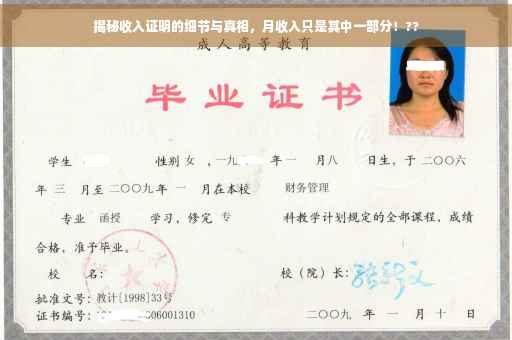 揭秘收入证明的细节与真相，月收入只是其中一部分！??
成人高等教育
毕业证书
学生 性别 女 ，一九 年一 月八 日生，于二〇〇六
年 三 月至二〇〇九年 一 月在本校 财务管理
专业 函授 学习，修完 专 科教学计划规定的全部课程，成绩
合格，准予毕业。
校 名： 校（院）长：
批准文号：教计[1998]33号
证书编号： 06001310 二〇〇九 年 一 月 十 日